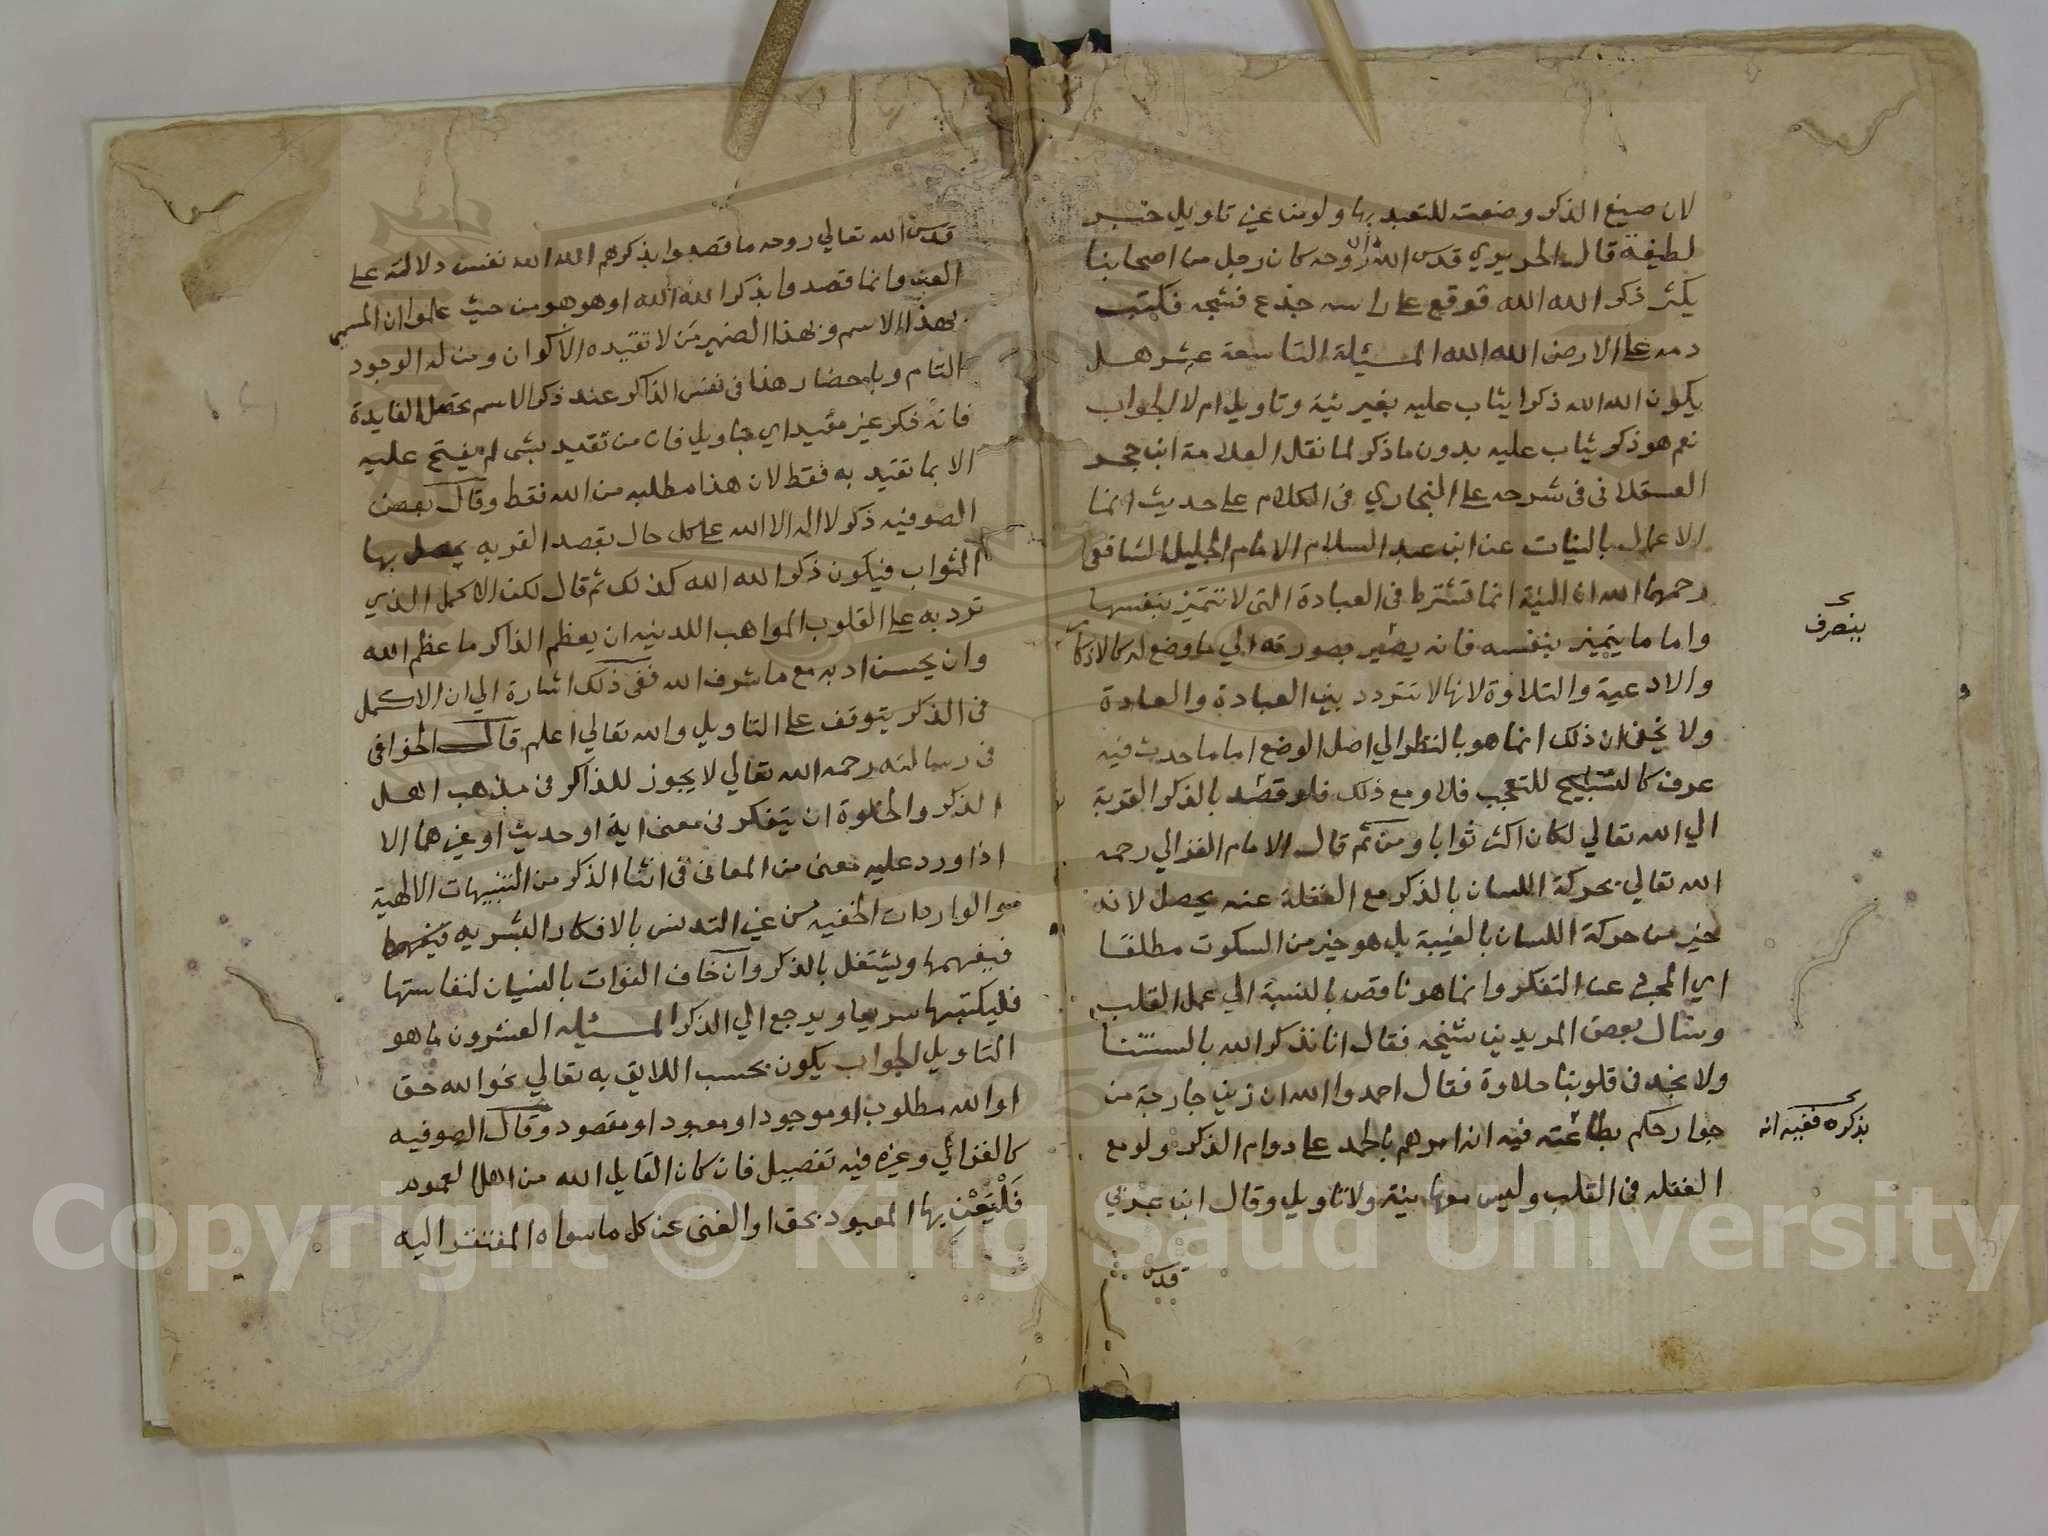 لان صيغ الذكر وضعت للتعبد بها ولو من غير تاويل خبر
لطيفة قال الحريري قدس الله روحه كان رجل من اصحابنا
يكثر ذكر الله الله فوقع على راسه جذع فشجه فكتب
دمه على الارض الله الله المسئلة التاسعة عشر هل
يكون الله الله ذكرا يثاب عليه بغير نية وتاويل ام لا الجواب
نعم هو ذكر يثاب عليه بدون ما ذكر لما نقل العلامة ابن حجر
العسقلاني في شرحه على البخاري في الكلام على حديث انما
الاعمال بالنيات عن ابن عبد السلام الامام الجليل الشافعي
رحمهما الله ان النية انما تشترط في العبادة التي لا تتميز بنفسها
واما ما يتميز بنفسه فانه يصير بصورته الي ما وضع له كالاذكار
والادعية والتلاوة لانها لا تتردد بين العبادة والعادة
ولا يخفى ان ذلك انما هو بالنظر الي اصل الوضع اما ما حدث فيه
عرف كالتسبيح للتعجب فلا ومع ذلك فلو قصد بالذكر القربة
الي الله تعالي لكان اكثر ثوابا ومن ثم قال الامام الغزالي رحمه
الله تعالي بحركة اللسان بالذكر مع الغفلة عنه يحصل لانه
خير من حركة اللسان بالغيبة بل هو خير من السكوت مطلقا
اي المجرد عن التفكر وانما هو ناقص بالنسبة الي عمل القلب
وسال بعض المريدين شيخه فقال انا نذكر الله بالسنتنا
ولا نجد في قلوبنا حلاوة فقال احمدوا الله ان زين جارحة من
جوارحكم بطاعته فيه انه امرهم بالحمد على دوام الذكر ولو مع
الغفله في القلب وليس معها نية ولا تاويل وقال ابن عربي
قدس
بتصرف
بذكره ففيه انه
قدس الله تعالي روحه ما قصدوا بذكرهم الله الله نفس دلالته على
العين وانما قصدوا بذكر الله الله او هو هو من حيث علموا ان المسمى
بهذا الاسم وبهذا الضمير من لا تقيده الاكوان ومن له الوجود
التام وباحضار هذا في نفس الذاكر عند ذكر الاسم تحصل الفايدة
فانه ذكر غير مقيد اي بتاويل فان من تقيد بشى لم يفتح عليه
الا بما تقيد به فقط لان هذا مطلبه من الله فقط وقال بعض
الصوفيه ذكر لا اله الا الله على كل حال بقصد القربه يحصل بها
الثواب فيكون ذكر الله الله كذلك ثم قال لكن الاكمل الذي
ترد به على القلوب المواهب اللدنيه ان يعظم الذاكر ما عظم الله
وان يحسن ادبه مع ما شرف الله ففي ذلك اشارة الي ان الاكمل
في الذكر يتوقف على التاويل والله تعالي اعلم قال الخوافي
في رسالته رحمه الله تعالي لا يجوز للذاكر في مذهب اهل
الذكر والخلوة ان يتفكر في معنى اية او حديث او غيرهما الا
اذا ورد عليه معنى من المعاني في اثنا الذكر من التنبيهات الالهية
والواردات الخفيه من غير التدنس بالافكار البشريه فيفهمها
فيفهمها ويشتغل بالذكر وان خاف الفوات بالنسيان لنفاستها
فليكتبها سريعا ويرجع الي الذكر المسئله العشرون ما هو
التاويل الجواب يكون بحسب اللايق به تعالي نحو الله حق
او الله مطلوب او موجود او معبود او مقصود وقال الصوفيه
كالغزالي وغيره فيه تفصيل فان كان القايل الله من اهل العموم
فليعن بها المعبود بحق او الغنى عن كل ما سواه المفتقر اليه
Copyright © King Saud University